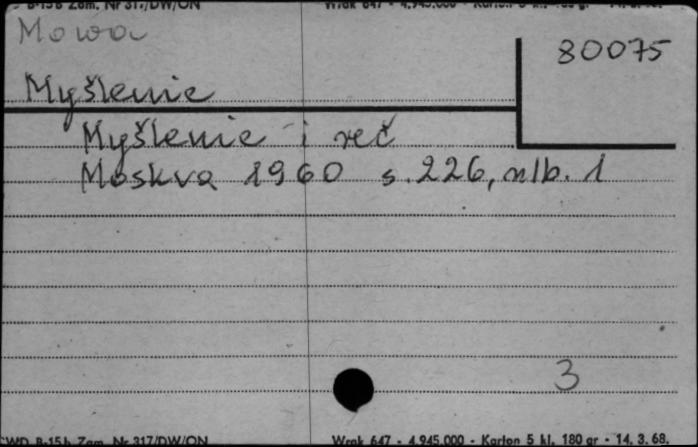 B-15b Zam. Nr 317/DW/ON Wrak 647 - 4.945.000 - Karton 5 kl. 180 gr. - 14. 3. 68.
Mowa
80075
Myšlenie
Myšlenie i reč
Moskva 1960 s. 226, nlb. 1
3
CWD B-15b Zam. Nr 317/DW/ON Wrak 647 - 4.945.000 - Karton 5 kl. 180 gr - 14. 3. 68.